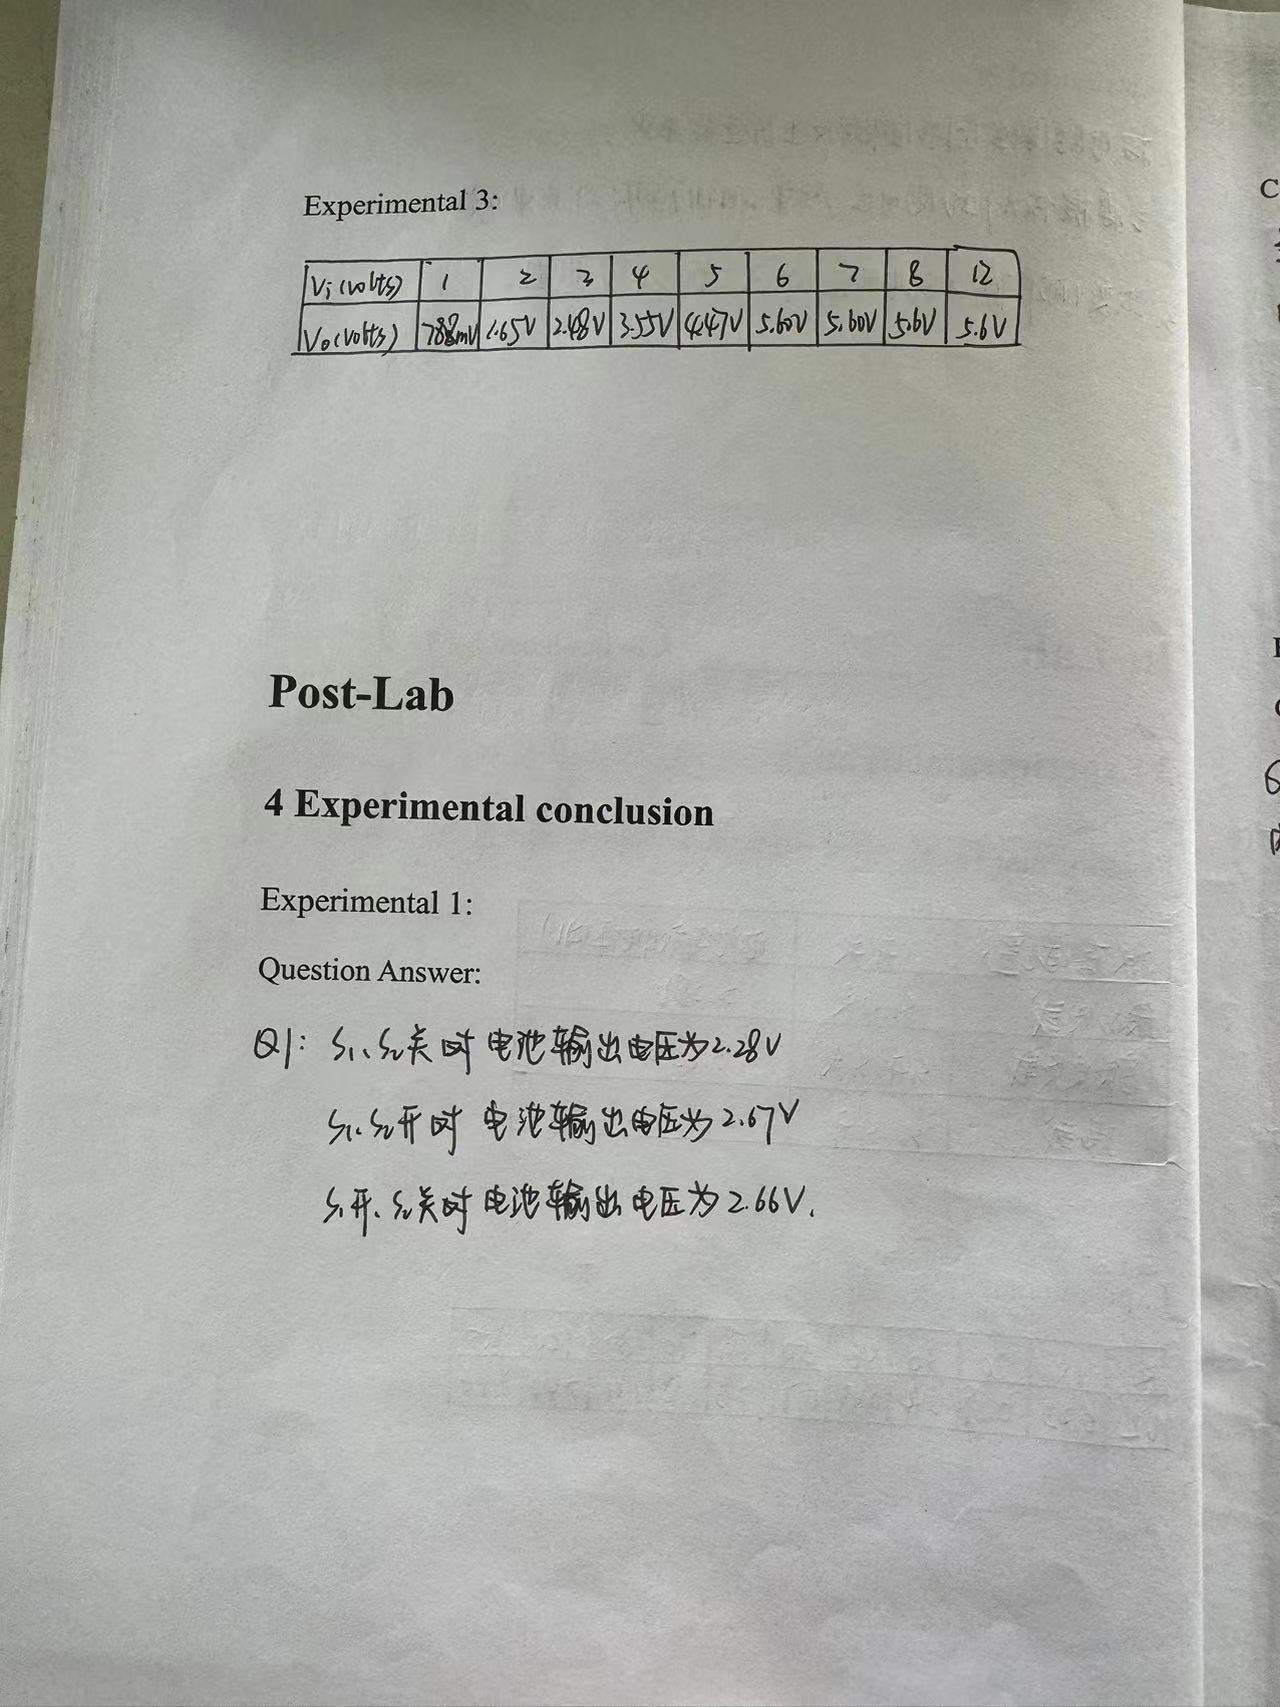 Experimental 3:
Vi (volts) 1 2 3 4 5 6 7 8 12
Vo (volts) 788mV 1.65V 2.48V 3.55V 4.47V 5.60V 5.60V 5.6V 5.6V
Post-Lab
4 Experimental conclusion
Experimental 1:
Question Answer:
Q1: S1、S2关时 电池输出电压为2.28V
S1、S2开时 电池输出电压为2.67V
S1开、S2关时 电池输出电压为2.66V.